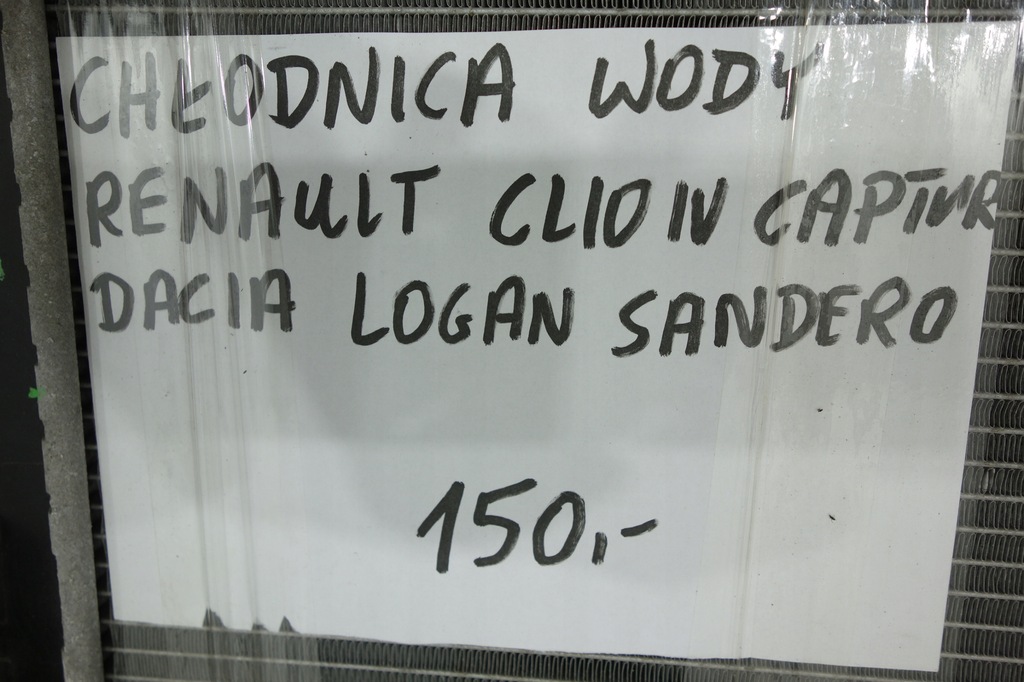 CHŁODNICA WODY
RENAULT CLIO IV CAPTUR
DACIA LOGAN SANDERO
150,-